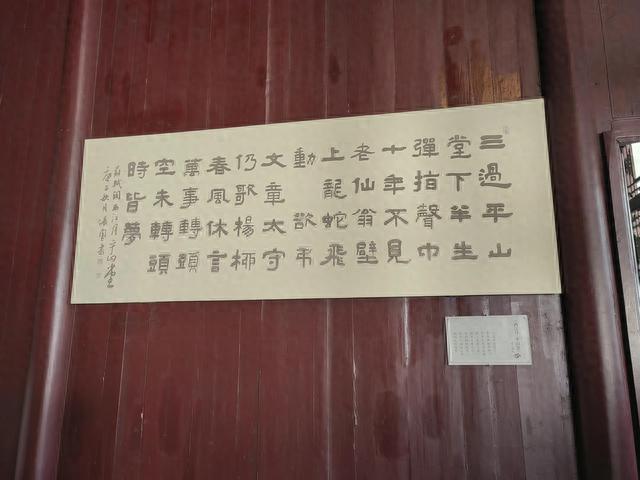 三過平山
堂下半生
彈指聲中
十年不見
老仙翁壁
上龍蛇飛
動 欲弔
文章太守
仍歌楊柳
春風休言
萬事轉頭
空未轉頭
時皆夢
蘇軾詞西江月平山堂